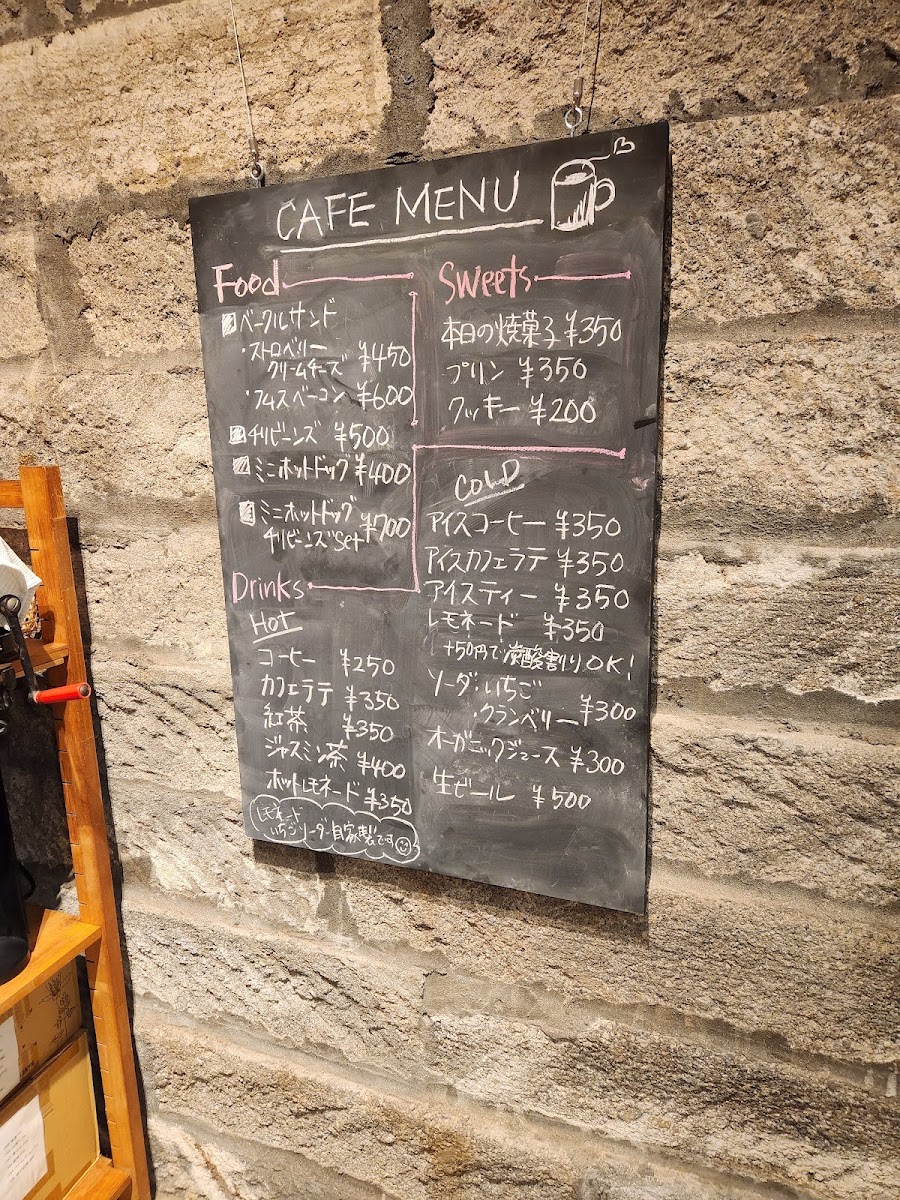 CAFE MENU
Food
ベーグルサンド
・ストロベリー
クリームチーズ ¥450
・フムスベーコン ¥600
チリビーンズ ¥500
ミニホットドッグ ¥400
ミニホットドッグ
チリビーンズSet ¥700
Sweets
本日の焼菓子 ¥350
プリン ¥350
クッキー ¥200
Drinks
Hot
コーヒー ¥250
カフェラテ ¥350
紅茶 ¥350
ジャスミン茶 ¥400
ホットレモネード ¥350
レモネード
いちごソーダ自家製です
COLD
アイスコーヒー ¥350
アイスカフェラテ ¥350
アイスティー ¥350
レモネード ¥350
+50円で炭酸割りOK!
ソーダ・いちご
・クランベリー ¥300
オーガニックジュース ¥300
生ビール ¥500